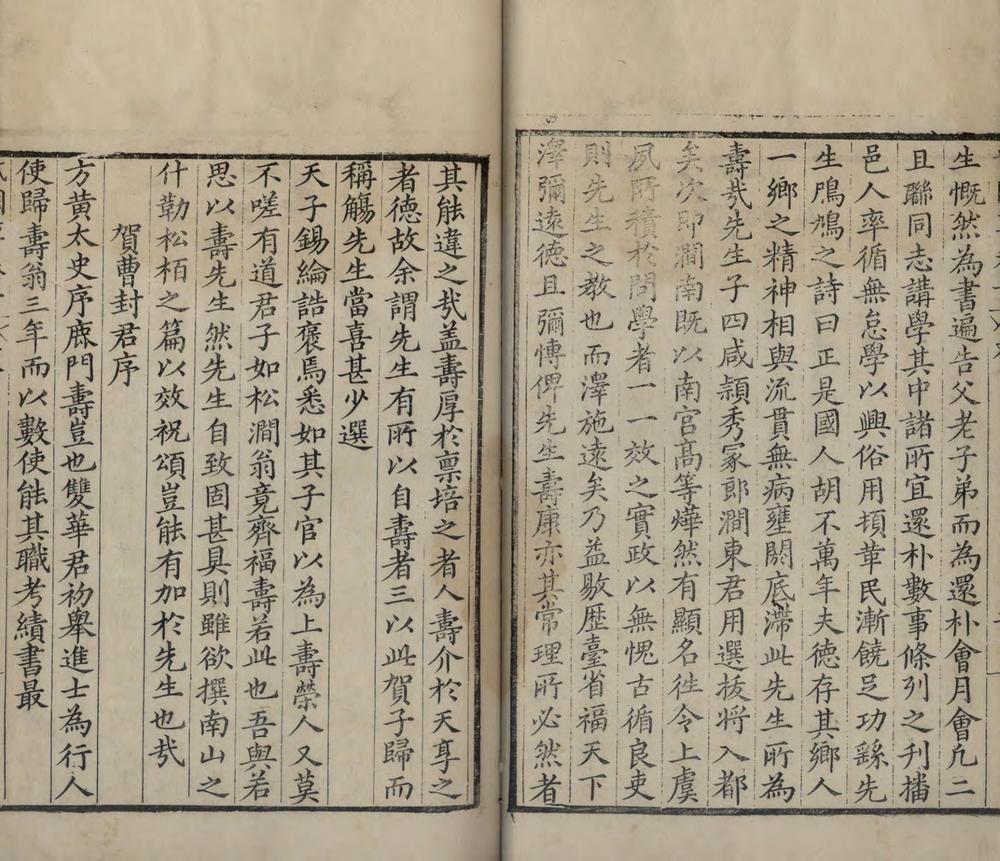 生慨然為書遍告父老子弟而為還朴會月會凢二
且聯同志講學其中諸所宜還朴數事條列之刋播
邑人率循無怠學以興俗用頓革民漸饒足功繇先
生鳲鳩之詩曰正是國人胡不萬年夫德存其鄉人
一鄉之精神相與流貫無病壅閼底滯此先生所為
壽㢤先生子四咸頴秀冢郎澗東君用選拔將入都
矣次即澗南既以南宮髙等燁然有顯名徃令上虞
夙所積於問學者一一效之實政以無愧古循良吏
則先生之教也而澤施遠矣乃益敭歴臺省福天下
澤彌遠德且彌愽俾先生壽康亦其常理所必然者
其能違之㢤益壽厚於禀培之者人壽介於天享之
者德故余謂先生有所以自壽者三以此賀子歸而
稱觴先生當喜甚少選
天子錫綸誥褒焉悉如其子官以為上壽榮人又莫
不嗟有道君子如松澗翁竟齊福壽若此也吾與若
思以壽先生然先生自致固甚具則雖欲撰南山之
什勒松栢之篇以效祝頌豈能有加於先生也㢤
賀曹封君序
方黄太史序鹿門壽豈也雙華君初舉進士為行人
使歸壽翁三年而以數使能其職考績書最